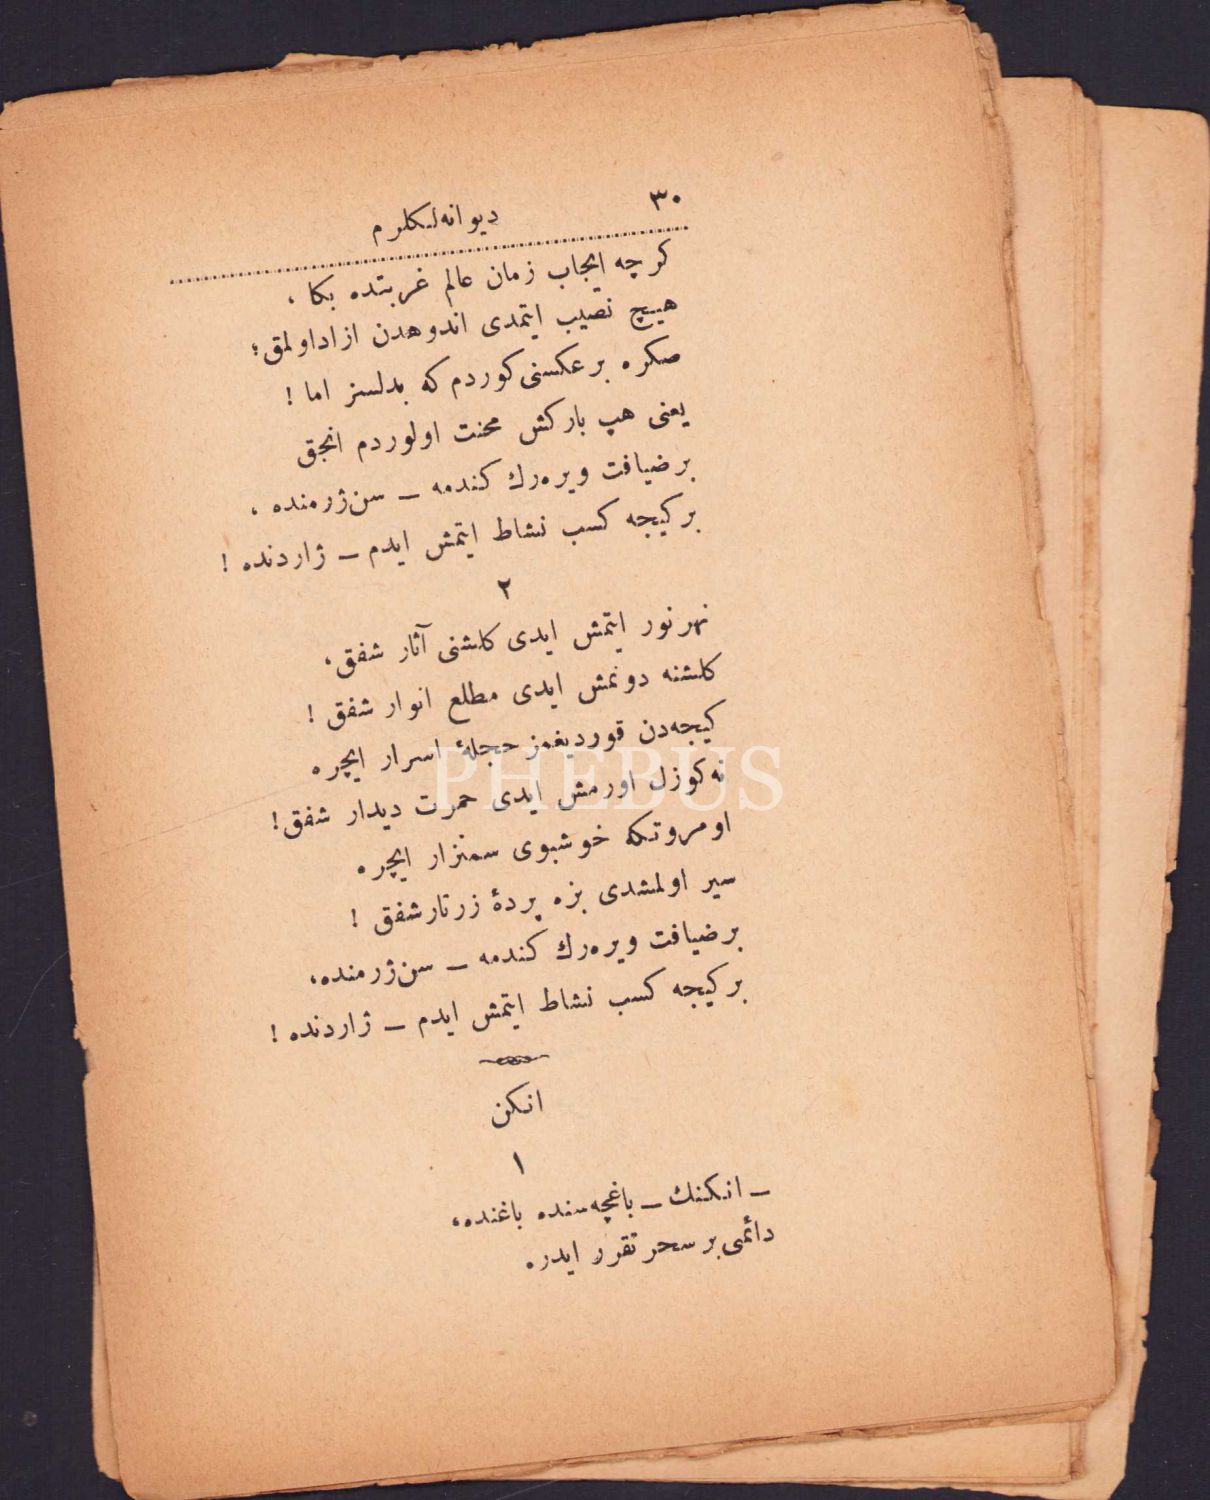 ٣٠
دیوانه‌لیکلرم
کرچه ایجاب زمان عالم غربتده بکا ،
هیچ نصیب ایتمدی اندوهدن ازاد اولمق ؛
صکره بر عکسنی کوردم که بدلسز اما !
یعنی هپ بارکش محنت اولوردم انجق
بر ضیافت ویره‌رك کندمه ــ سن ژرمنده ،
بر کیجه کسب نشاط ایتمش ایدم ــ ژاردنده !
٢
نهر نور ایتمش ایدی کلشنی آثار شفق ،
کلشنه دونمش ایدی مطلع انوار شفق !
کیجه‌دن قوردیغمز حجلۀ اسرار ایچره
نه کوزل اورمش ایدی حمرت دیدار شفق !
او مروتکه خوشبوی سمنزار ایچره
سیر اولمشدی بزه پردۀ زرتار شفق !
بر ضیافت ویره‌رك کندمه ــ سن ژرمنده ،
بر کیجه کسب نشاط ایتمش ایدم ــ ژاردنده !
انکن
١
ــ انکنك ــ باغچه‌سنده باغنده ،
دائمی بر سحر تقرر ایدر .
PHEBUS